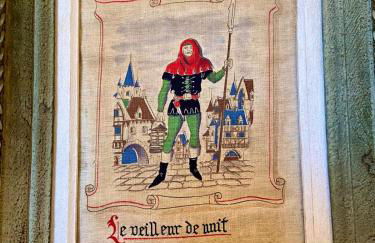 Le veilleur de nuit